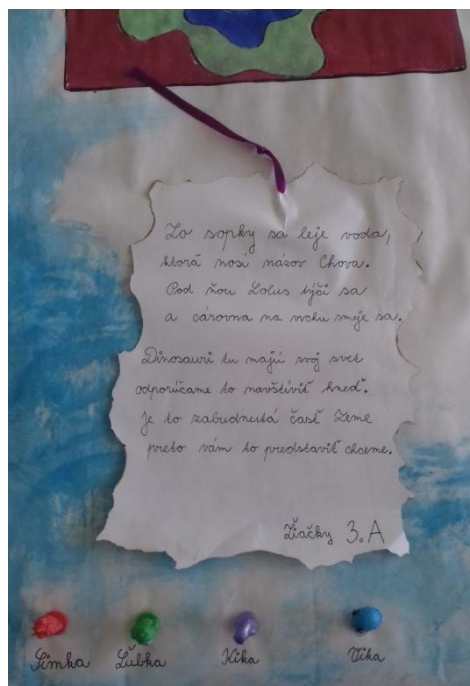 Zo sopky sa leje voda,
ktorá nosí názov Chova.
Pod ňou Lolus týči sa
a čarovna na vrchu smeje sa.
Dinosauri tu majú svoj svet
odporúčame to navštíviť hneď.
Je to zabudnutá časť Zeme
preto vám to predstaviť chceme.
Žiačky 3.A
Simka Ľubka Kika Vika